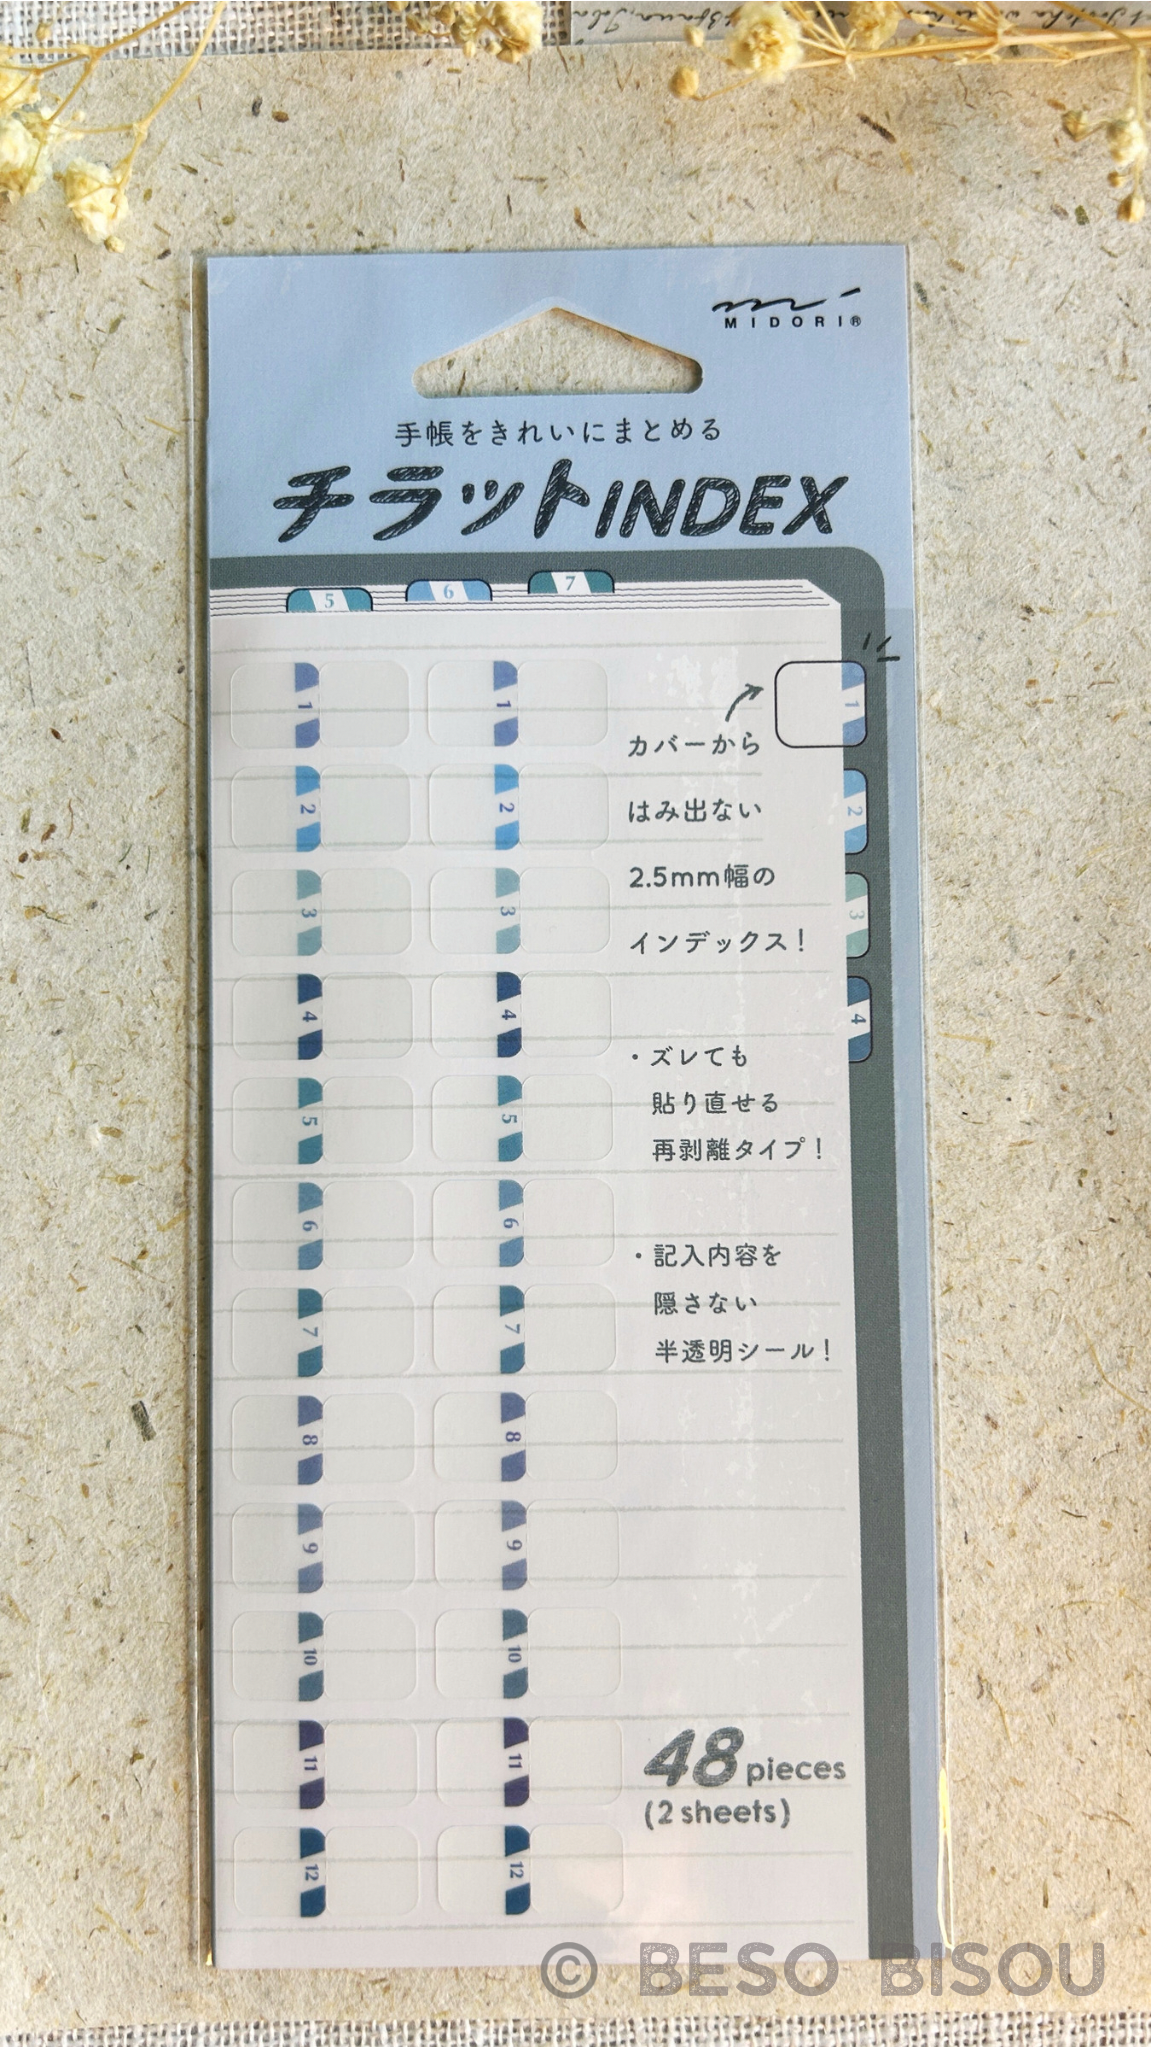 MIDORI®
手帳をきれいにまとめる
チラットINDEX
5 6 7
1 1 1
カバーから
2 2 2
はみ出ない
2.5mm幅の
3 3 3
インデックス！
4 4 4
・ズレても
5 5
貼り直せる
再剥離タイプ！
6 6
・記入内容を
隠さない
7 7
半透明シール！
8 8
9 9
10 10
11 11
48 pieces
(2 sheets)
12 12
© BESO BISOU